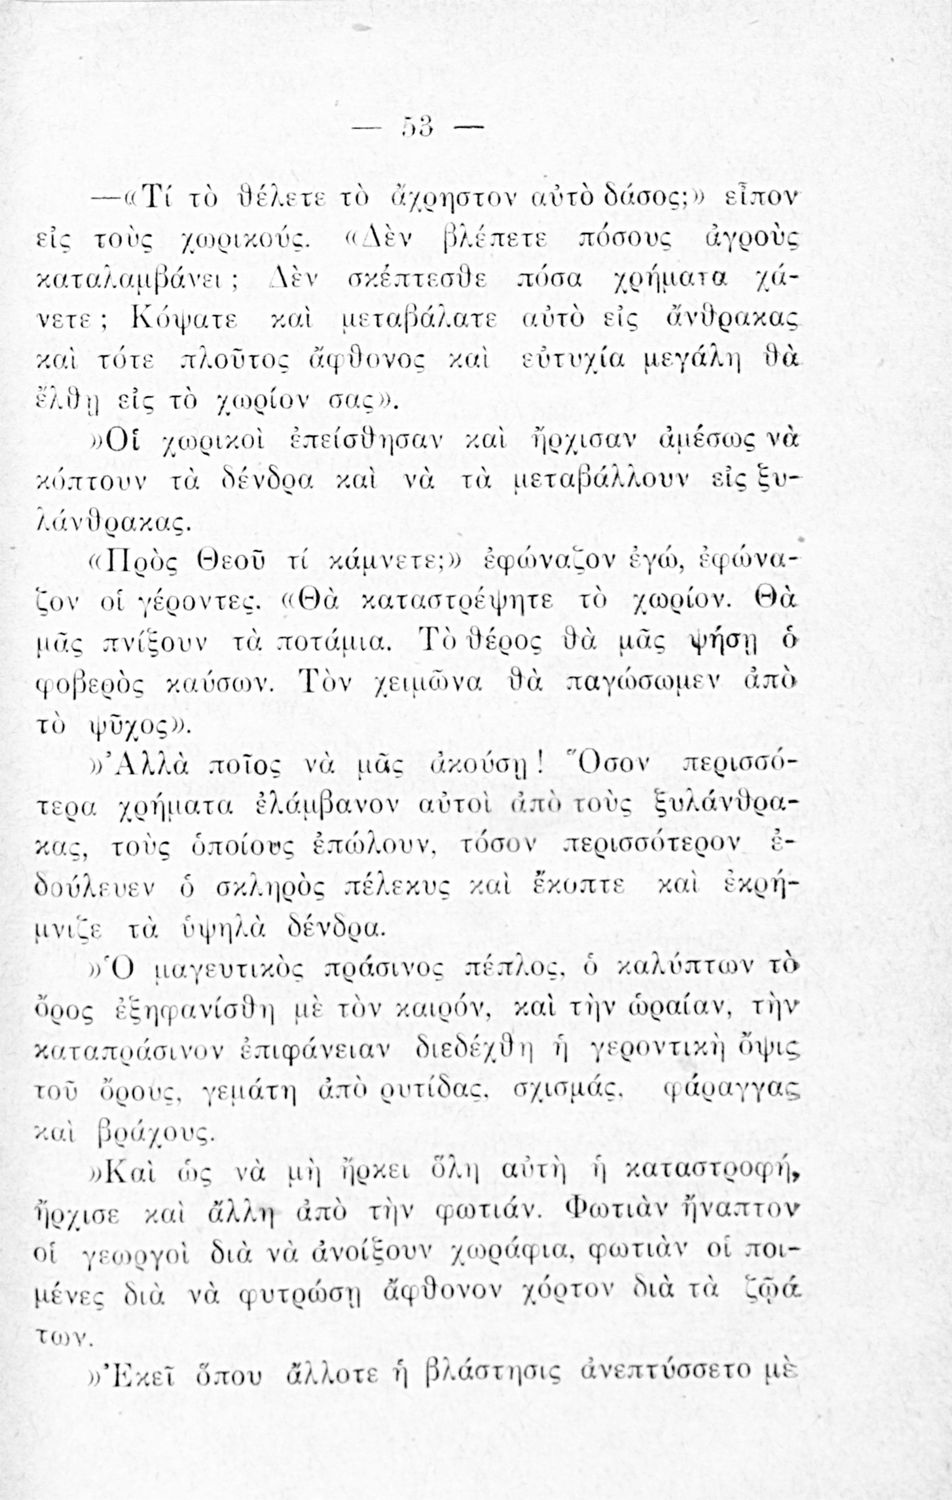 — 53 —
—«Τί τὸ θέλετε τὸ ἄχρηστον αὐτὸ δάσος;» εἶπον
εἰς τοὺς χωρικούς. «Δὲν βλέπετε πόσους ἀγροὺς
καταλαμβάνει ; Δὲν σκέπτεσθε πόσα χρήματα χά-
νετε ; Κόψατε καὶ μεταβάλατε αὐτὸ εἰς ἄνθρακας
καὶ τότε πλοῦτος ἄφθονος καὶ εὐτυχία μεγάλη θὰ
ἔλθῃ εἰς τὸ χωρίον σας».
»Οἱ χωρικοὶ ἐπείσθησαν καὶ ἤρχισαν ἀμέσως νὰ
κόπτουν τὰ δένδρα καὶ νὰ τὰ μεταβάλλουν εἰς ξυ-
λάνθρακας.
«Πρὸς Θεοῦ τί κάμνετε;» ἐφώναζον ἐγώ, ἐφώνα-
ζον οἱ γέροντες. «Θὰ καταστρέψητε τὸ χωρίον. Θὰ
μᾶς πνίξουν τὰ ποτάμια. Τὸ θέρος θὰ μᾶς ψήσῃ ὁ
φοβερὸς καύσων. Τὸν χειμῶνα θὰ παγώσωμεν ἀπὸ
τὸ ψῦχος».
»Ἀλλὰ ποῖος νὰ μᾶς ἀκούσῃ ! Ὅσον περισσό-
τερα χρήματα ἐλάμβανον αὐτοὶ ἀπὸ τοὺς ξυλάνθρα-
κας, τοὺς ὁποίους ἐπώλουν, τόσον περισσότερον ἐ-
δούλευεν ὁ σκληρὸς πέλεκυς καὶ ἔκοπτε καὶ ἐκρή-
μνιζε τὰ ὑψηλὰ δένδρα.
»Ὁ μαγευτικὸς πράσινος πέπλος, ὁ καλύπτων τὸ
ὄρος ἐξηφανίσθη μὲ τὸν καιρόν, καὶ τὴν ὡραίαν, τὴν
καταπράσινον ἐπιφάνειαν διεδέχθη ἡ γεροντικὴ ὄψις
τοῦ ὄρους, γεμάτη ἀπὸ ρυτίδας, σχισμάς, φάραγγας
καὶ βράχους.
»Καὶ ὡς νὰ μὴ ἤρκει ὅλη αὐτὴ ἡ καταστροφή,
ἤρχισε καὶ ἄλλη ἀπὸ τὴν φωτιάν. Φωτιὰν ἤναπτον
οἱ γεωργοὶ διὰ νὰ ἀνοίξουν χωράφια, φωτιὰν οἱ ποι-
μένες διὰ νὰ φυτρώσῃ ἄφθονον χόρτον διὰ τὰ ζῷά
των.
»Ἐκεῖ ὅπου ἄλλοτε ἡ βλάστησις ἀνεπτύσσετο μὲ